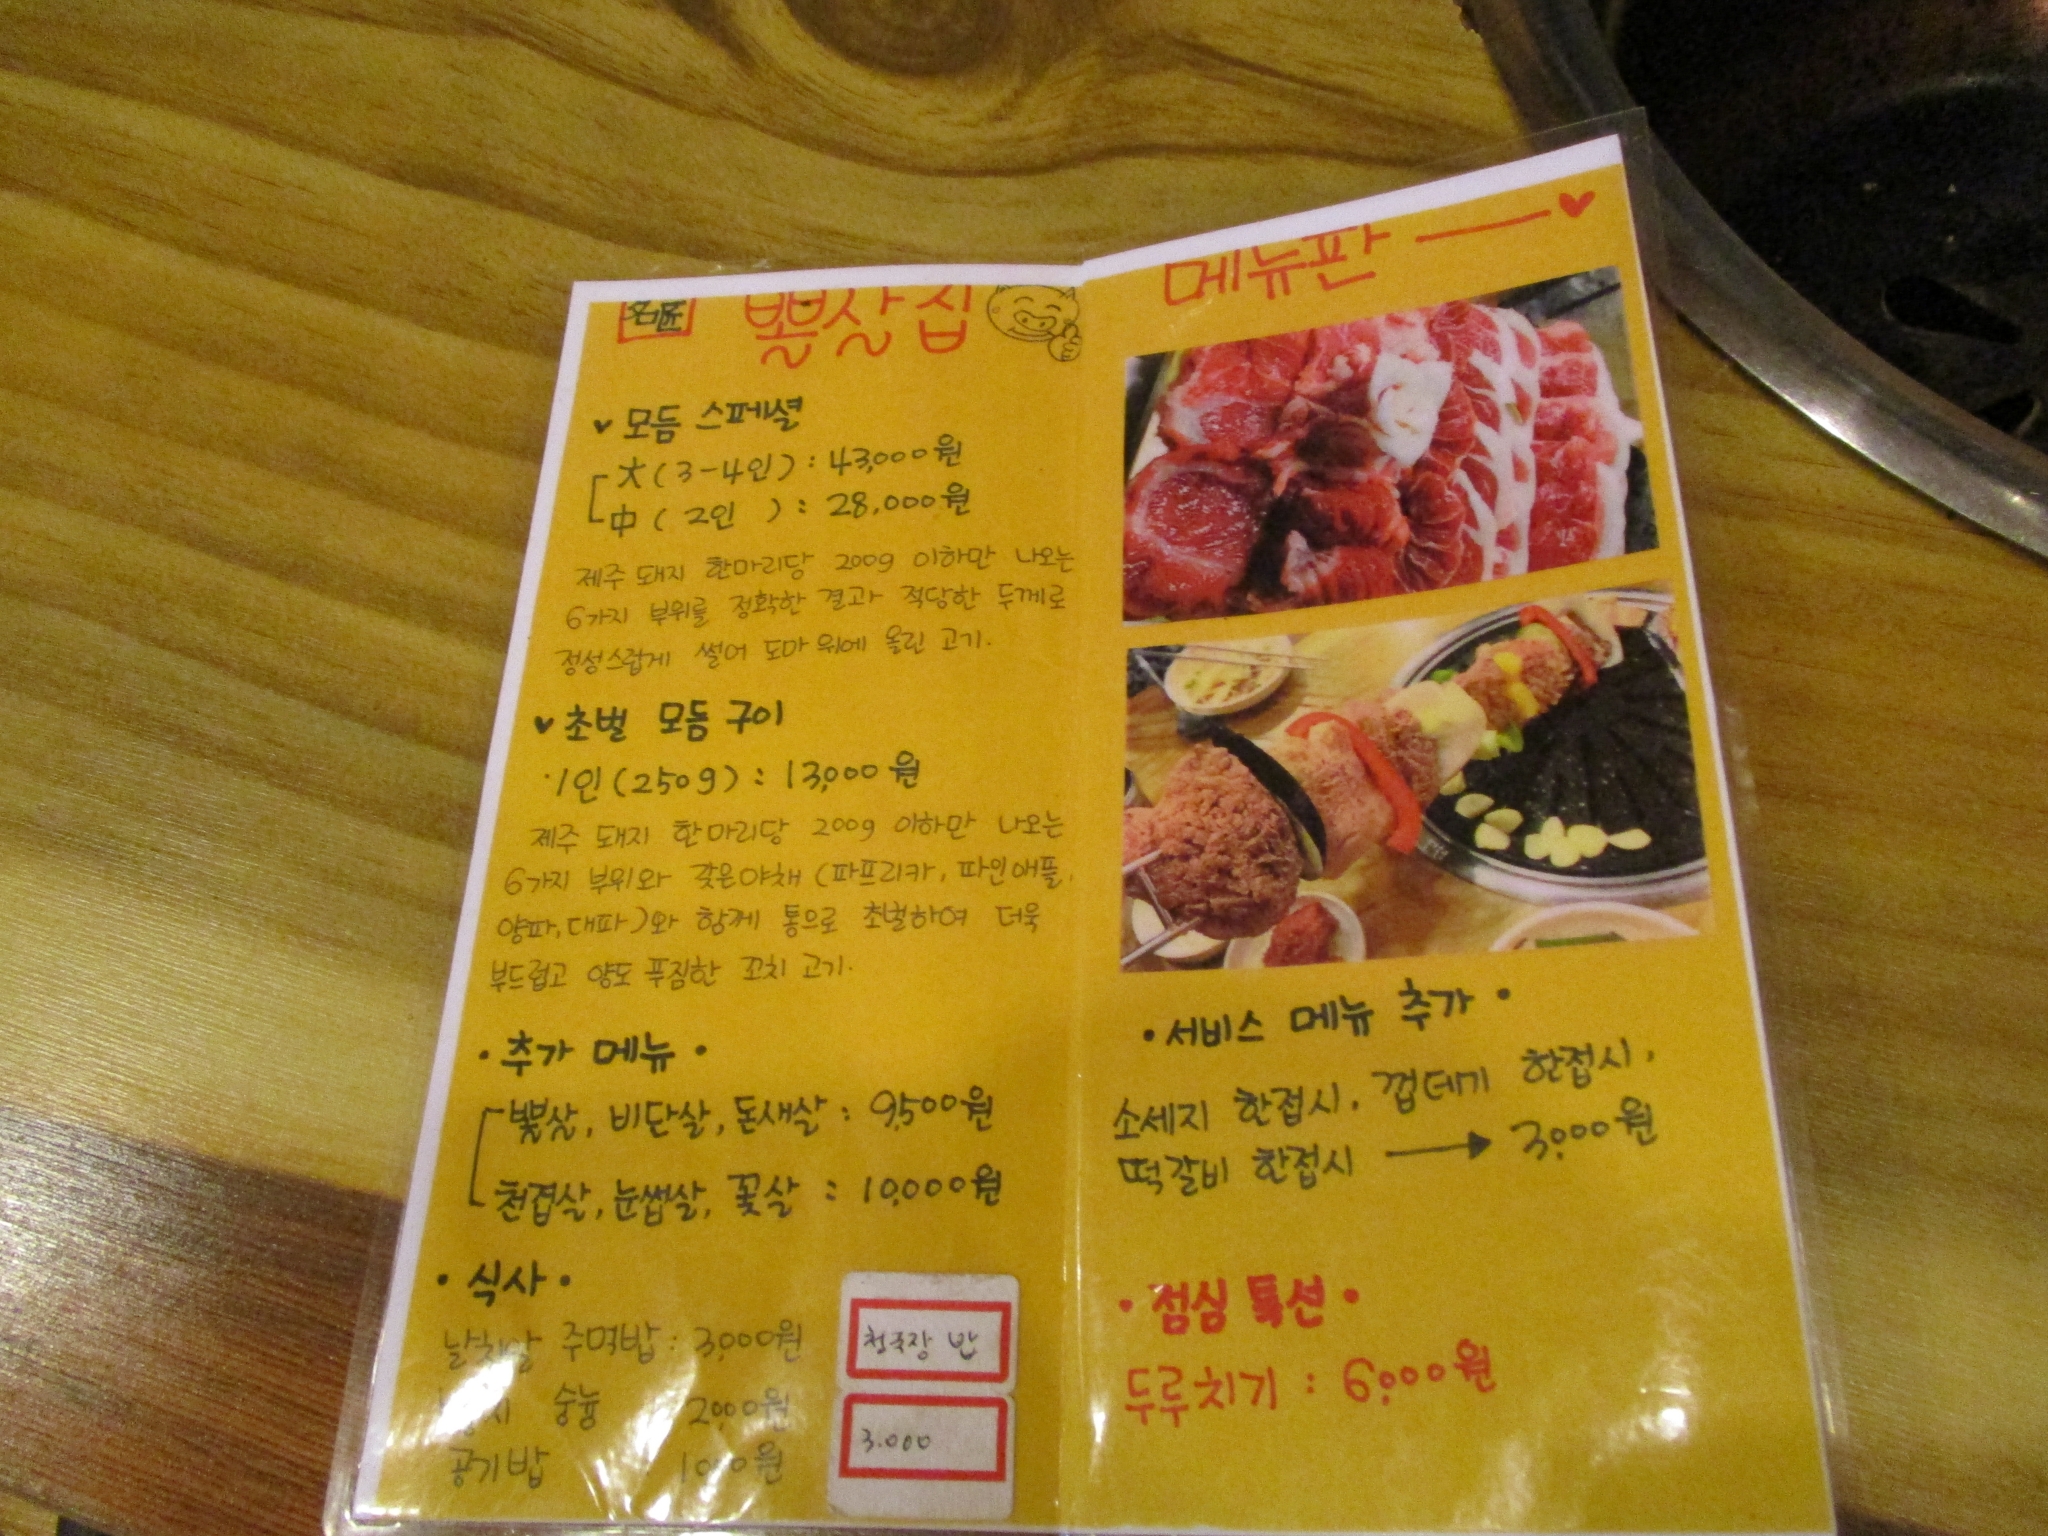 名匠 뽈살집
♥ 모듬 스페셜
大 (3-4인) : 43,000원
中 ( 2인 ) : 28,000원
제주 돼지 한마리당 200g 이하만 나오는
6가지 부위를 정확한 결과 적당한 두께로
정성스럽게 썰어 도마 위에 올린 고기.
♥ 초벌 모듬 구이
·1인(250g) : 13,000원
제주 돼지 한마리당 200g 이하만 나오는
6가지 부위와 갖은야채 (파프리카, 파인애플,
양파, 대파)와 함께 통으로 초벌하여 더욱
부드럽고 양도 푸짐한 꼬치 고기.
• 추가 메뉴 •
뽈살, 비단살, 돈새살 : 9,500원
천겹살, 눈썹살, 꽃살 : 10,000원
• 식사 •
날치알 주먹밥 : 3,000원
숭늉 2,000원
공기밥 : 1,000원
청국장 반
3.000
메뉴판 ♥
• 서비스 메뉴 추가 •
소세지 한접시, 껍데기 한접시,
떡갈비 한접시 → 3,000원
• 점심 특선 •
두루치기 : 6,000원